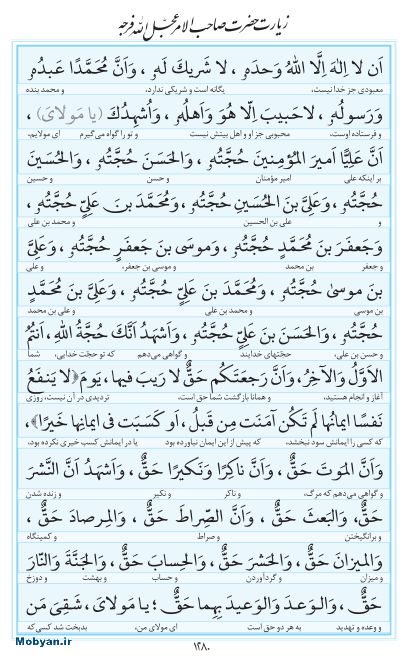 زیارت حضرت صاحب الامر عجل الله فرجه
اَن لا اِلٰهَ اِلَّا اللّٰهُ وَحدَهٗ ، لا شَریكَ لَهٗ ، وَاَنَّ مُحَمَّدًا عَبدُهٗ
معبودی جز خدا نیست، یگانه است و شریکی ندارد، و محمد بنده
وَرَسولُهٗ ، لاحَبیبَ اِلّا هُوَ وَاَهلُهٗ ، وَاُشهِدُكَ (یا مَولایَ)
و فرستاده اوست، محبوبی جز او و اهل بیتش نیست و تو را گواه می‌گیرم ای مولایم،
اَنَّ عَلِیًّا اَمیرَ المُؤمِنینَ حُجَّتُهٗ ، وَالحَسَنَ حُجَّتُهٗ ، وَالحُسَینَ
بر اینکه علی امیر مؤمنان و حسن و حسین
حُجَّتُهٗ ، وَعَلِیَّ بنَ الحُسَینِ حُجَّتُهٗ ، وَمُحَمَّدَ بنَ عَلِیٍّ حُجَّتُهٗ ،
و علی بن الحسین و محمد بن علی
وَجَعفَرَ بنَ مُحَمَّدٍ حُجَّتُهٗ ، وَموسَی بنَ جَعفَرٍ حُجَّتُهٗ ، وَعَلِیَّ
و جعفر بن محمد و موسی بن جعفر، و علی
بنَ موسیٰ حُجَّتُهٗ ، وَمُحَمَّدَ بنَ عَلِیٍّ حُجَّتُهٗ ، وَعَلِیَّ بنَ مُحَمَّدٍ
بن موسی و محمد بن علی و علی بن محمد
حُجَّتُهٗ ، وَالحَسَنَ بنَ عَلِیٍّ حُجَّتُهٗ ، وَاَشهَدُ اَنَّكَ حُجَّةُ اللّٰهِ ، اَنتُمُ
و حسن بن علی، حجتهای خدایند و گواهی می‌دهم که تو حجّت خدایی، شما
الاَوَّلُ وَالآخِرُ، وَاَنَّ رَجعَتَكُم حَقٌّ لا رَیبَ فیها، یَومَ ﴿لا یَنفَعُ
آغاز و انجام هستید، و همانا بازگشت شما حق است، تردیدی در آن نیست، روزی
نَفسًا ایمانُها لَم تَكُن آمَنَت مِن قَبلُ، اَو كَسَبَت فی ایمانِها خَیرًا﴾،
که کسی را ایمانش سود نبخشد، که پیش از این ایمان نیاورده بود یا در ایمانش کسب خیری نکرده بود،
وَاَنَّ المَوتَ حَقٌّ ، وَاَنَّ ناكِرًا وَنَكیرًا حَقٌّ ، وَاَشهَدُ اَنَّ النَّشرَ
و گواهی می‌دهم که مرگ، و ناکر و نکیر و زنده شدن
حَقٌّ، وَالبَعثَ حَقٌّ ، وَاَنَّ الصِّراطَ حَقٌّ ، وَالمِرصادَ حَقٌّ ،
و برانگیختن و صراط و کمینگاه
وَالمیزانَ حَقٌّ ، وَالحَشرَ حَقٌّ ، وَالحِسابَ حَقٌّ ، وَالجَنَّةَ وَالنّارَ
و میزان و گردآوردن و حساب و بهشت و دوزخ
حَقٌّ ، وَالوَعدَ وَالوَعیدَ بِهِما حَقٌّ ؛ یا مَولایَ، شَقِیَ مَن
و وعده و تهدید به هر دو حق است ای مولای من، بدبخت شد کسی که
۱۲۸۰
Mobyan.ir